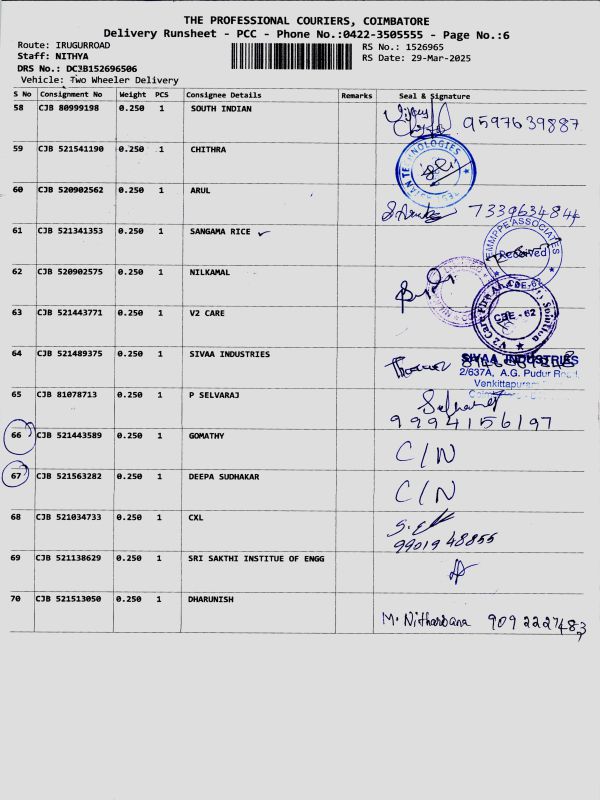 THE PROFESSIONAL COURIERS, COIMBATORE
Delivery Runsheet - PCC - Phone No.:0422-3505555 - Page No.:6
Route: IRUGURROAD
RS No.: 1526965
Staff: NITHYA
RS Date: 29-Mar-2025
DRS No.: DC3B152696506
Vehicle: Two Wheeler Delivery
S No Consignment No Weight PCS Consignee Details Remarks Seal & Signature
58 CJB 80999198 0.250 1 SOUTH INDIAN 9597639887
59 CJB 521541190 0.250 1 CHITHRA
60 CJB 520902562 0.250 1 ARUL 7339634844
61 CJB 521341353 0.250 1 SANGAMA RICE ✓ ASSOCIATES Received
62 CJB 520902575 0.250 1 NILKAMAL
63 CJB 521443771 0.250 1 V2 CARE CBE - 62
64 CJB 521489375 0.250 1 SIVAA INDUSTRIES SIVAA INDUSTRIES
2/637A, A.G. Pudur Road
Venkittapuram
65 CJB 81078713 0.250 1 P SELVARAJ 9994156197
66 CJB 521443589 0.250 1 GOMATHY C/N
67 CJB 521563282 0.250 1 DEEPA SUDHAKAR C/N
68 CJB 521034733 0.250 1 CXL 9901948855
69 CJB 521138629 0.250 1 SRI SAKTHI INSTITUE OF ENGG
70 CJB 521513050 0.250 1 DHARUNISH M. Nitharsana 9092227483